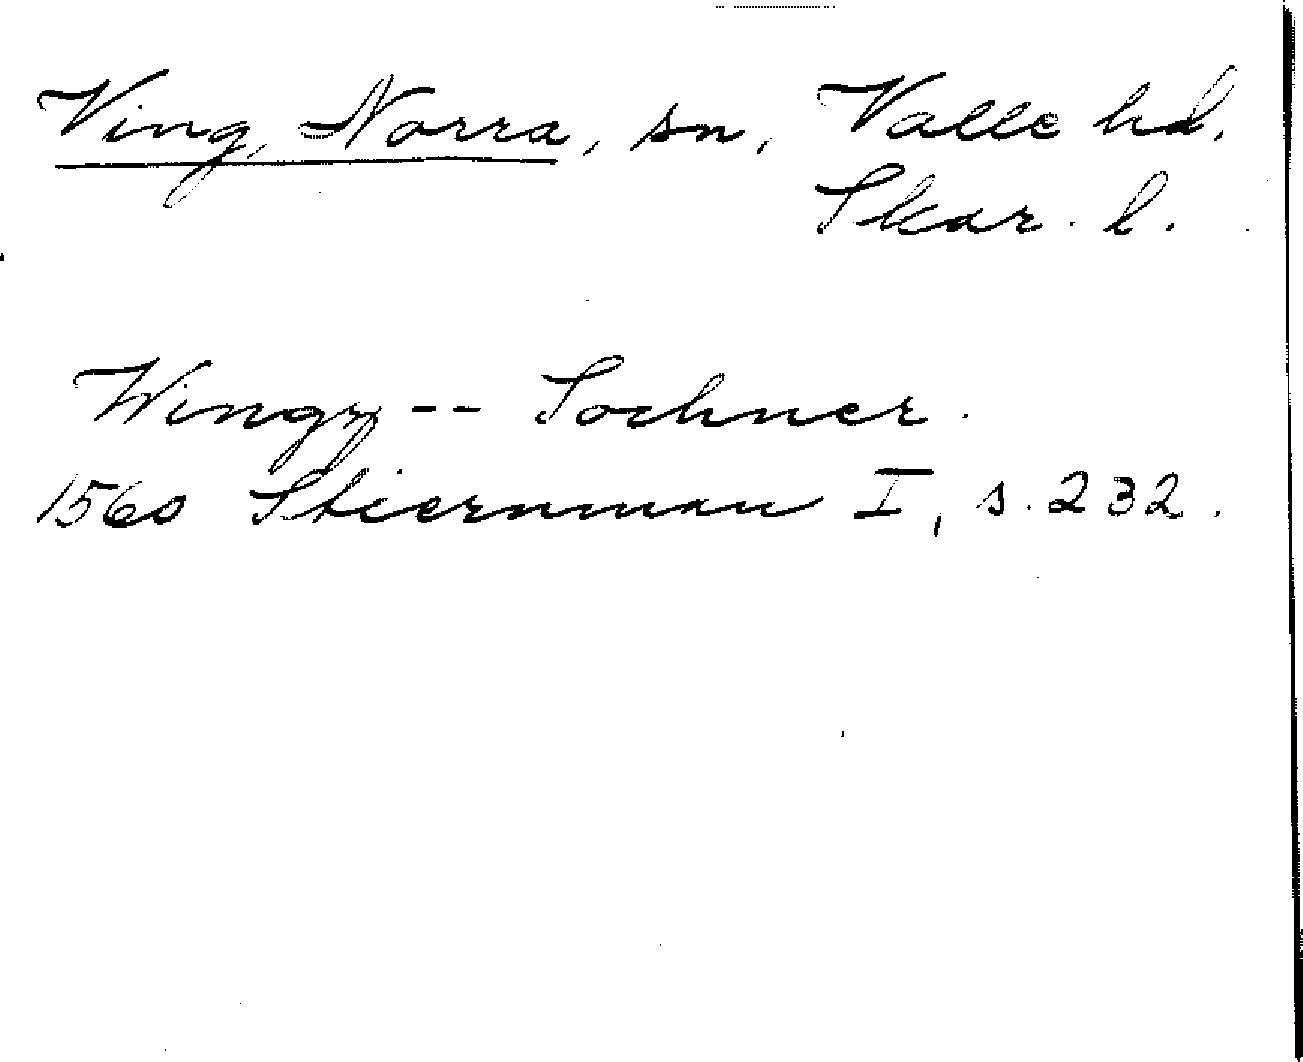 Ving, Norra, sn, Valle hd.
Skar. l.
Wingz -- Sochner.
1560 Stiernman I, s. 232.